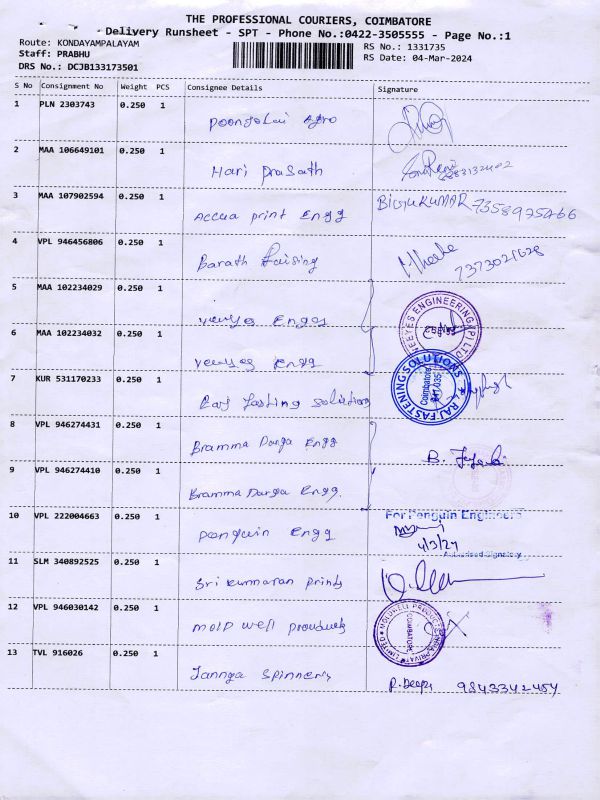 THE PROFESSIONAL COURIERS, COIMBATORE
Delivery Runsheet - SPT - Phone No.:0422-3505555 - Page No.:1
Route: KONDAYAMPALAYAM
RS No.: 1331735
Staff: PRABHU
RS Date: 04-Mar-2024
DRS No.: DCJB133173501
S No Consignment No Weight PCS Consignee Details Signature
1 PLN 2303743 0.250 1
2 MAA 106649101 0.250 1 Hari prasath
3 MAA 107902594 0.250 1 Accua print Engg BIJUKUMAR
4 VPL 946456806 0.250 1 Barath 7373021628
5 MAA 102234029 0.250 1
NEEYES ENGINEERING (P) LTD
6 MAA 102234032 0.250 1
7 KUR 531170233 0.250 1 solutions
RAJ FASTENING SOLUTIONS
Coimbatore
641 035
8 VPL 946274431 0.250 1 Bramma Durga Engg
9 VPL 946274410 0.250 1 Bramma Durga Engg.
10 VPL 222004663 0.250 1 penguin Engg
For Penguin Engineers
4/3/24
Authorised Signatory
11 SLM 340892525 0.250 1 Sri kumaran prints
12 VPL 946030142 0.250 1 mold well products
MOLDWELL PRODUCTS INDIA PRIVATE LIMITED
COIMBATORE
13 TVL 916026 0.250 1 spinners R. Deepa 9843342454